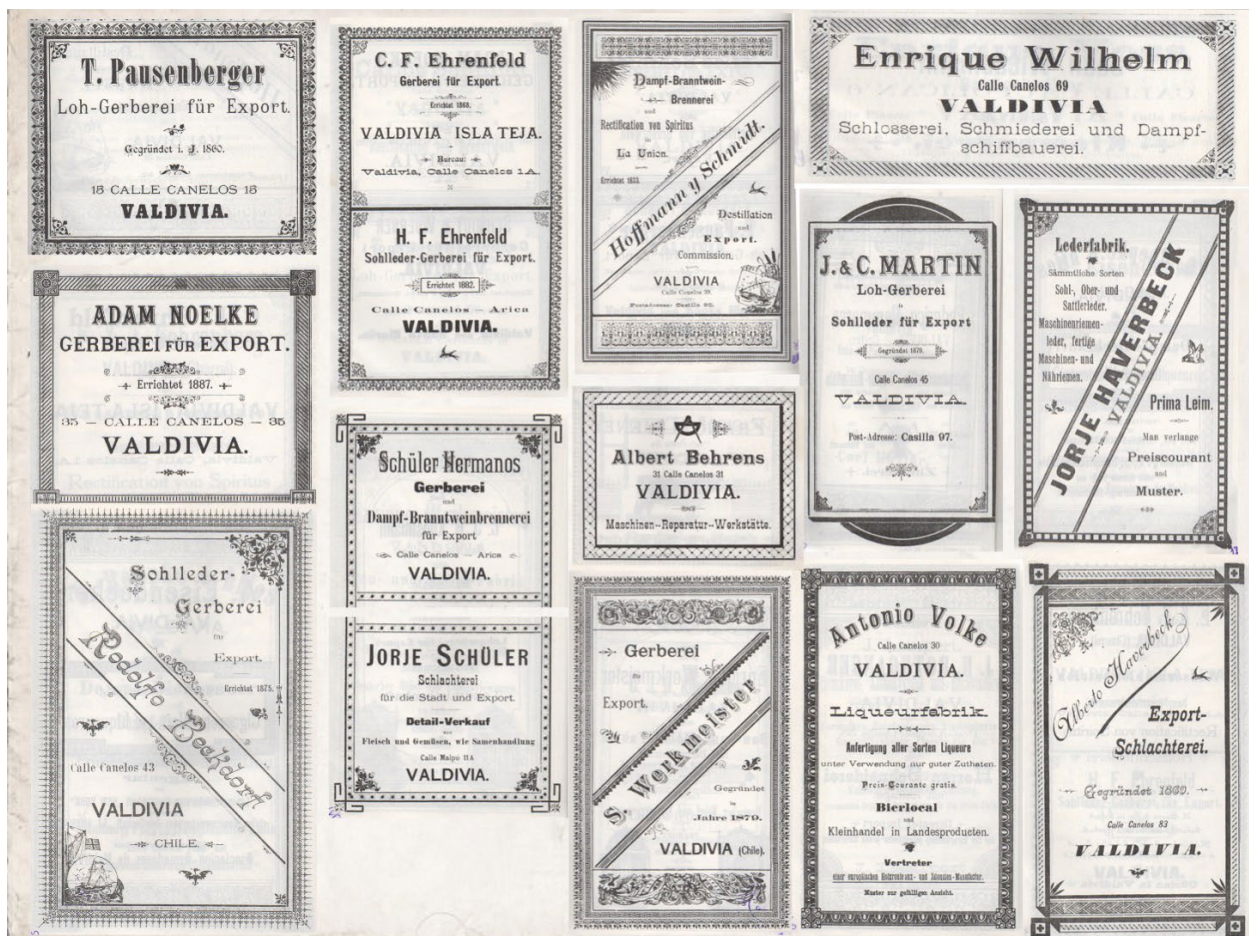 T. Pausenberger
Loh-Gerberei für Export.
Gegründet i. J. 1860.
18 CALLE CANELOS 18
VALDIVIA.
ADAM NOELKE
GERBEREI FÜR EXPORT.
Errichtet 1887.
35 – CALLE CANELOS – 35
VALDIVIA.
Sohlleder-
Gerberei
für
Export.
Errichtet 1875.
Rodolfo Beckdorf
Calle Canelos 43
VALDIVIA
CHILE.
C. F. Ehrenfeld
Gerberei für Export.
Errichtet 1868.
VALDIVIA – ISLA TEJA.
Bureau:
Valdivia, Calle Canelos 1 A.
H. F. Ehrenfeld
Sohlleder-Gerberei für Export.
Errichtet 1882.
Calle Canelos – Arica
VALDIVIA.
Schüler Hermanos
Gerberei
und
Dampf-Branntweinbrennerei
für Export
Calle Canelos – Arica
VALDIVIA.
JORJE SCHÜLER
Schlachterei
für die Stadt und Export.
Detail-Verkauf
von
Fleisch und Gemüsen, wie Samenhandlung
Calle Maipo 11A
VALDIVIA.
Dampf-Branntwein-
Brennerei
und
Rectification von Spiritus
in
La Union.
Errichtet 1853.
Hoffmann y Schmidt.
Destillation
und
Export.
Commission.
VALDIVIA
Calle Canelos
Postadresse: Casilla
Albert Behrens
31 Calle Canelos 31
VALDIVIA.
Maschinen-Reparatur-Werkstätte.
Gerberei
für
Export.
S. Werkmeister
Gegründet
im
Jahre 1879.
VALDIVIA (Chile).
Enrique Wilhelm
Calle Canelos 69
VALDIVIA
Schlosserei, Schmiederei und Dampf-
schiffbauerei.
J. & C. MARTIN
Loh-Gerberei
Sohlleder für Export
Gegründet 1879.
Calle Canelos 45
VALDIVIA.
Post-Adresse: Casilla 97.
Lederfabrik.
Sämmtliche Sorten
Sohl-, Ober- und
Sattlerleder.
Maschinenriemen-
leder, fertige
Maschinen- und
Nähriemen.
JORJE HAVERBECK
VALDIVIA.
Prima Leim.
Man verlange
Preiscourant
und
Muster.
Antonio Volke
Calle Canelos 30
VALDIVIA.
Liqueurfabrik
Anfertigung aller Sorten Liqueure
unter Verwendung nur guter Zuthaten.
Preis-Courante gratis.
Bierlocal
und
Kleinhandel in Landesproducten.
Vertreter
einer europäischen Holzrouleaux- und Jalousien-Manufactur.
Muster zur gefälligen Ansicht.
Alberto Haverbeck
Export-
Schlachterei.
Gegründet
Calle Canelos 83
VALDIVIA.